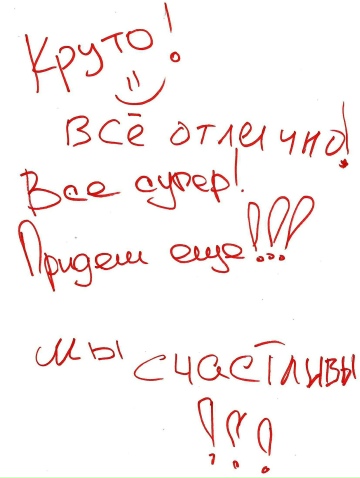 Круто!
всё отлично!
Все супер!
Придем еще!!!
мы счастливы
!!!